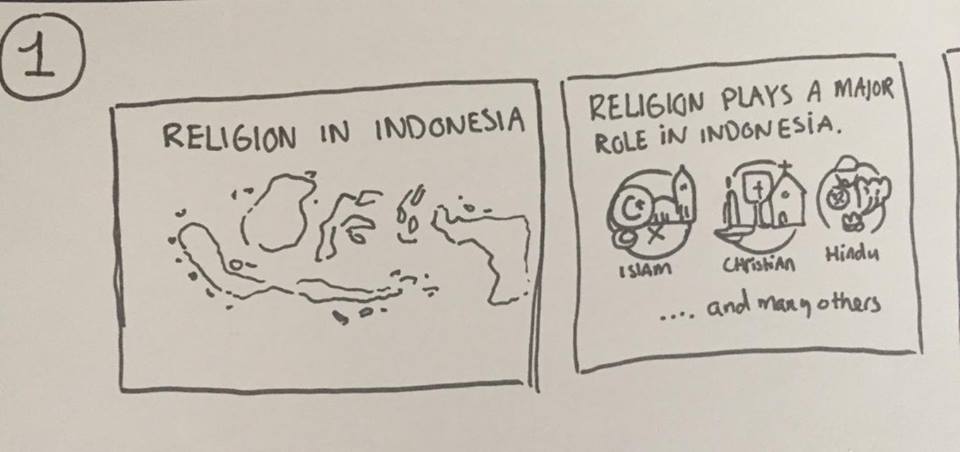 1
RELIGION IN INDONESIA
RELIGION PLAYS A MAJOR
ROLE IN INDONESIA.
ISLAM
CHristiAn
Hindu
.... and many others